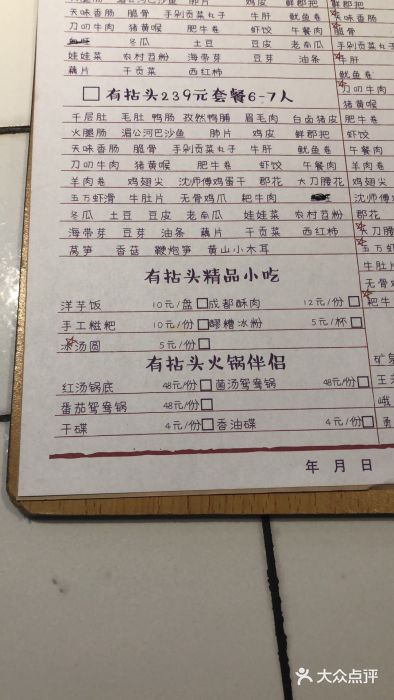 天味香肠 腊骨 手剁贡菜丸子 牛肝 鱿鱼
刀叨牛肉 猪黄喉 肥牛卷 虾饺 午餐肉
冬瓜 土豆 豆皮 老南瓜
娃娃菜 农村苕粉 海带芽 豆芽 油条
藕片 干贡菜 西红柿
有拈头239元套餐6-7人
千层肚 毛肚 鸭肠 孜然鸭脯 眉毛肉 白卤猪皮
火腿肠 湄公河巴沙鱼 肺片 鸡皮 鲜郡把
天味香肠 腊骨 手剁贡菜丸子 牛肝 鱿鱼
刀叨牛肉 猪黄喉 肥牛卷 虾饺 午餐肉
羊肉卷 鸡翅尖 沈师傅鸡蛋干 郡花 大刀腰花
五方虾滑 牛肚片 无骨鸡爪 粑牛肉
冬瓜 土豆 豆皮 老南瓜 娃娃菜 农村苕粉
海带芽 豆芽 油条 藕片 干贡菜 西红柿
莴笋 香菇 鞭炮笋 黄山小木耳
有拈头精品小吃
洋芋饭 10元/盘 成都酥肉 12元/份
手工糍粑 10元/份 醪糟冰粉 5元/杯
冰汤圆 5元/份
有拈头火锅伴侣
红汤锅底 48元/份 菌汤鸳鸯锅 48元/份
番茄鸳鸯锅 48元/份
干碟 4元/份 香油碟 4元/份
年 月 日
鲜郡把
天味香肠
腊骨
手剁贡菜丸子
牛肝
鱿鱼
刀叨牛肉
猪黄喉
肥牛卷
虾饺
午餐肉
羊肉卷
鸡翅尖
沈师傅
郡花
大刀腰
五方虾
牛肚片
无骨鸡
粑牛
矿泉
大众点评